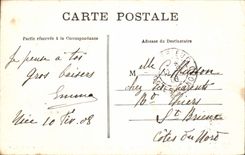 CARTE POSTALE
Partie réservée à la Correspondance
Adresse du Destinataire
Je pense à toi
gros baisers
Emma
Nice 10 Fév. 08
Melle
chez ses parents
Bd Thiers
St Brieuc
Côtes du Nord